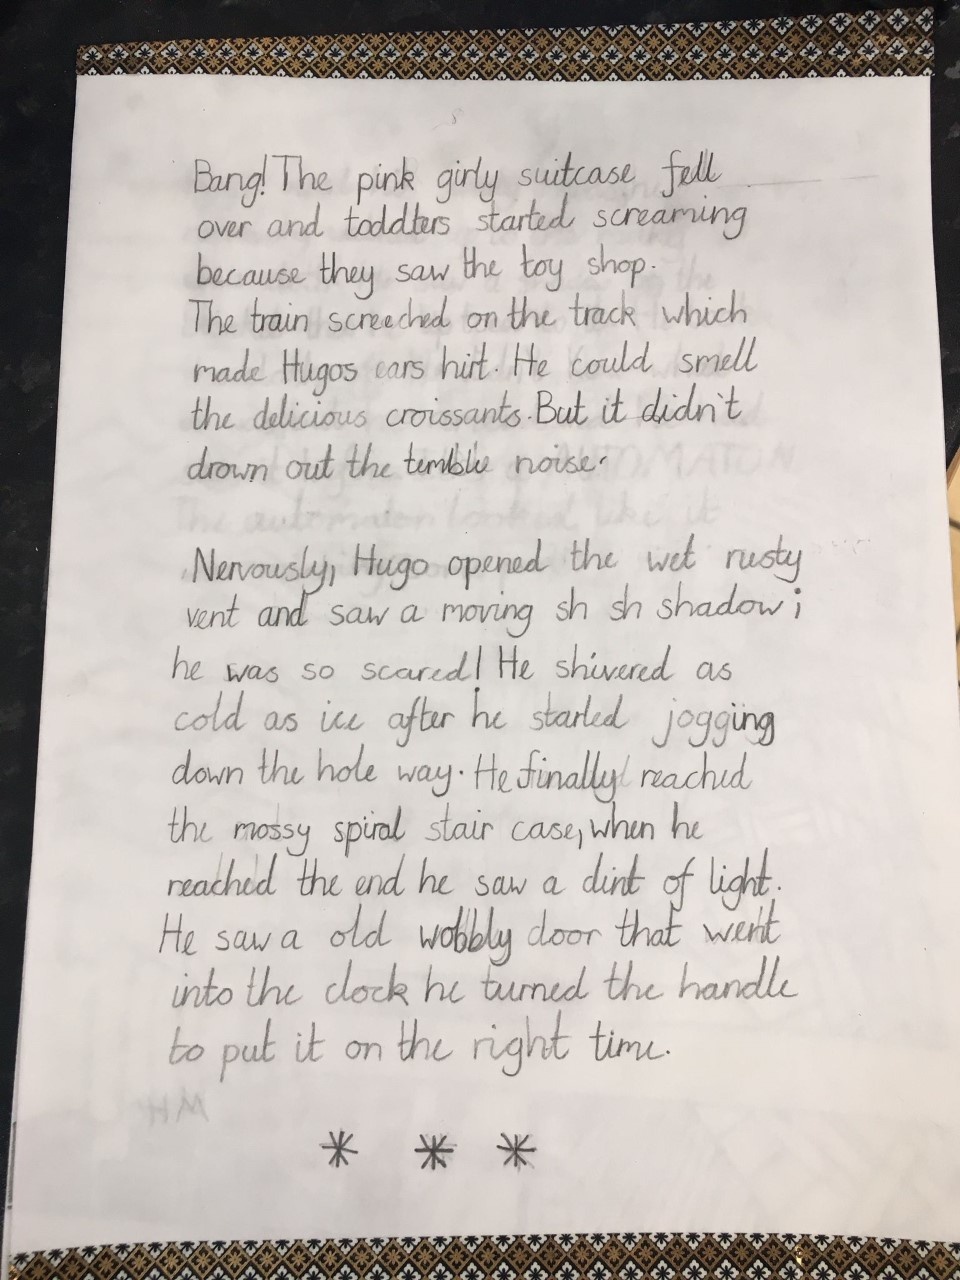 Bang! The pink girly suitcase fell
over and toddlers started screaming
because they saw the toy shop.
The train screeched on the track which
made Hugos ears hirt. He could smell
the delicious croissants. But it didn't
drown out the terrible noise.
Nervously, Hugo opened the wet rusty
vent and saw a moving sh sh shadow;
he was so scared! He shivered as
cold as ice after he started jogging
down the hole way. He finally reached
the mossy spiral stair case, when he
reached the end he saw a dint of light.
He saw a old wobbly door that went
into the clock he turned the handle
to put it on the right time.
* * *